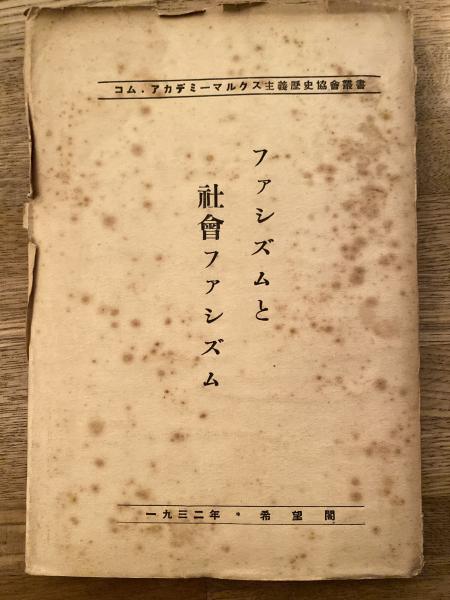 コム・アカデミーマルクス主義歴史協會叢書
ファシズムと
社會ファシズム
一九三二年・希望閣